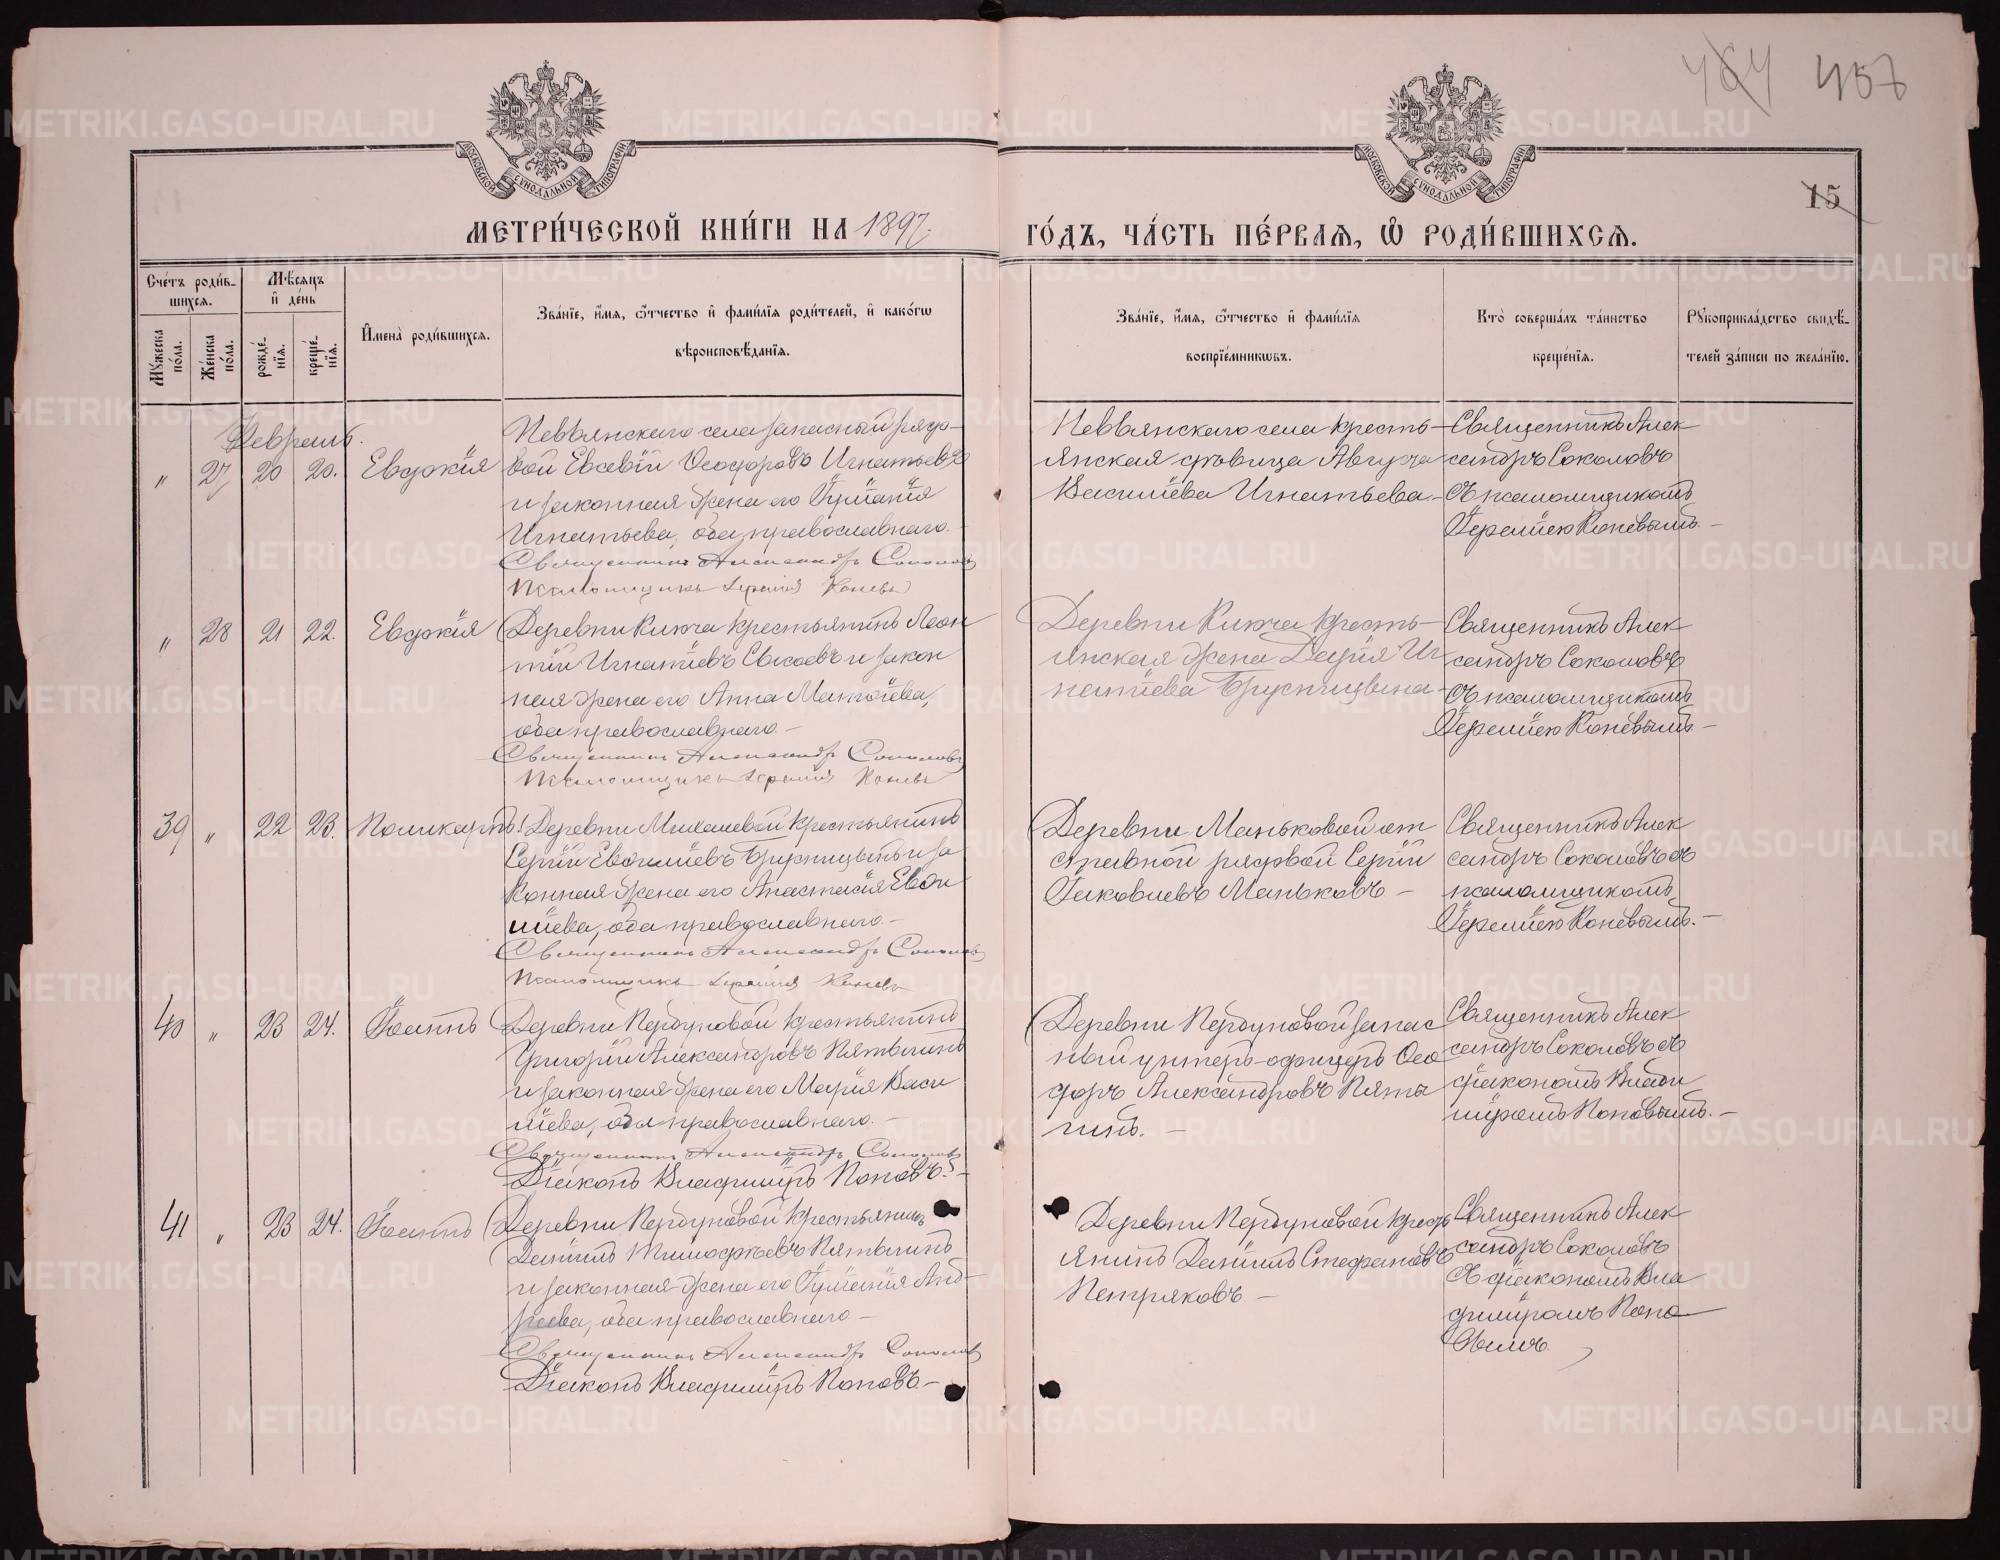 464 457
15
МОСКОВСКОЙ СѴНОДАЛЬНОЙ ТИПОГРАФІИ
МОСКОВСКОЙ СѴНОДАЛЬНОЙ ТИПОГРАФІИ
МЕТРИ́ЧЕСКОЙ КНИ́ГИ НА 1897.
ГО́ДЪ, ЧА́СТЬ ПЕ́РВАЯ, Ѽ РОДИ́ВШИХСЯ.
Сче́тъ роди́в-
шихся.
Мꙋжеска по́ла.
Же́нска по́ла.
Мѣ́сяцъ
и҆ де́нь
рожде́-
нїя.
креще́-
нїя.
И҆мена̀ роди́вшихся.
Зва́нїе, и҆́мя, ѻ҆́тчество и҆ фами́лїя роди́телей, и҆ како́гѡ
вѣроисповѣ́данїя.
Зва́нїе, и҆́мя, ѻ҆́тчество и҆ фами́лїя
воспрїе́мникѡвъ.
Кто̀ соверша́лъ та́инство
креще́нїя.
Рꙋкоприкла́дство свидѣ́-
телей за́писи по жела́нїю.
Февраль.
„ 27 20 20. Евдокія
Невьянскаго села запасный рядо-
вой Евсевій Ѳеодоровъ Игнатьевъ
и законная жена его Іуліанія
Игнатьева, оба православнаго.-
Священникъ Александръ Соколовъ
Псаломщикъ Іеремія Коневъ
Невьянскаго села кресть-
янская дѣвица Августа
Васильева Игнатьева.-
Священникъ Алек
сандръ Соколовъ
съ псаломщикомъ
Іереміею Коневымъ.-
„ 28 21 22. Евдокія
Деревни Ключа крестьянинъ Леон
тій Игнатіевъ Сысоевъ и закон
ная жена его Анна Матѳіева,
оба православнаго.-
Священникъ Александръ Соколовъ
Псаломщикъ Іеремія Коневъ
Деревни Ключа кресть-
янская жена Дарія Иг
натіева Брусницына-
Священникъ Алек
сандръ Соколовъ
съ псаломщикомъ
Іереміею Коневымъ.-
39 „ 22 23. Поликарпъ
Деревни крестьянинъ
Сергій Брусницынъ и за
конная жена его Анастасія
оба православнаго-
Священникъ Александръ Соколовъ
Псаломщикъ Іеремія Коневъ
Деревни Маньковой от
ставной рядовой Сергій
Іаковлевъ Маньковъ-
Священникъ Алек
сандръ Соколовъ съ
псаломщикомъ
Іереміею Коневымъ.-
40 „ 23 24. Іоаннъ
Деревни Первуновой крестьянинъ
Григорій Александровъ Пятыгинъ
и законная жена его Марія Васи
ліева, оба православнаго.-
Священникъ Александръ Соколовъ
Діаконъ Владиміръ Поповъ.-
Деревни Первуновой запас
ный унтеръ-офицеръ Ѳео
доръ Александровъ Пяты
гинъ.-
Священникъ Алек
сандръ Соколовъ съ
діакономъ Влади
міромъ Поповымъ.-
41 „ 23 24. Іоаннъ
Деревни Первуновой крестьянинъ
Даніилъ Тимоѳеевъ Пятыгинъ
и законная жена его Іуліанія Анд-
реева, оба православнаго-
Священникъ Александръ Соколовъ
Діаконъ Владиміръ Поповъ-
Деревни Первуновой кресть
янинъ Даніилъ Стефановъ
Петряковъ-
Священникъ Алек
сандръ Соколовъ
съ діакономъ Вла
диміромъ Попо
вымъ.
METRIKI.GASO-URAL.RU